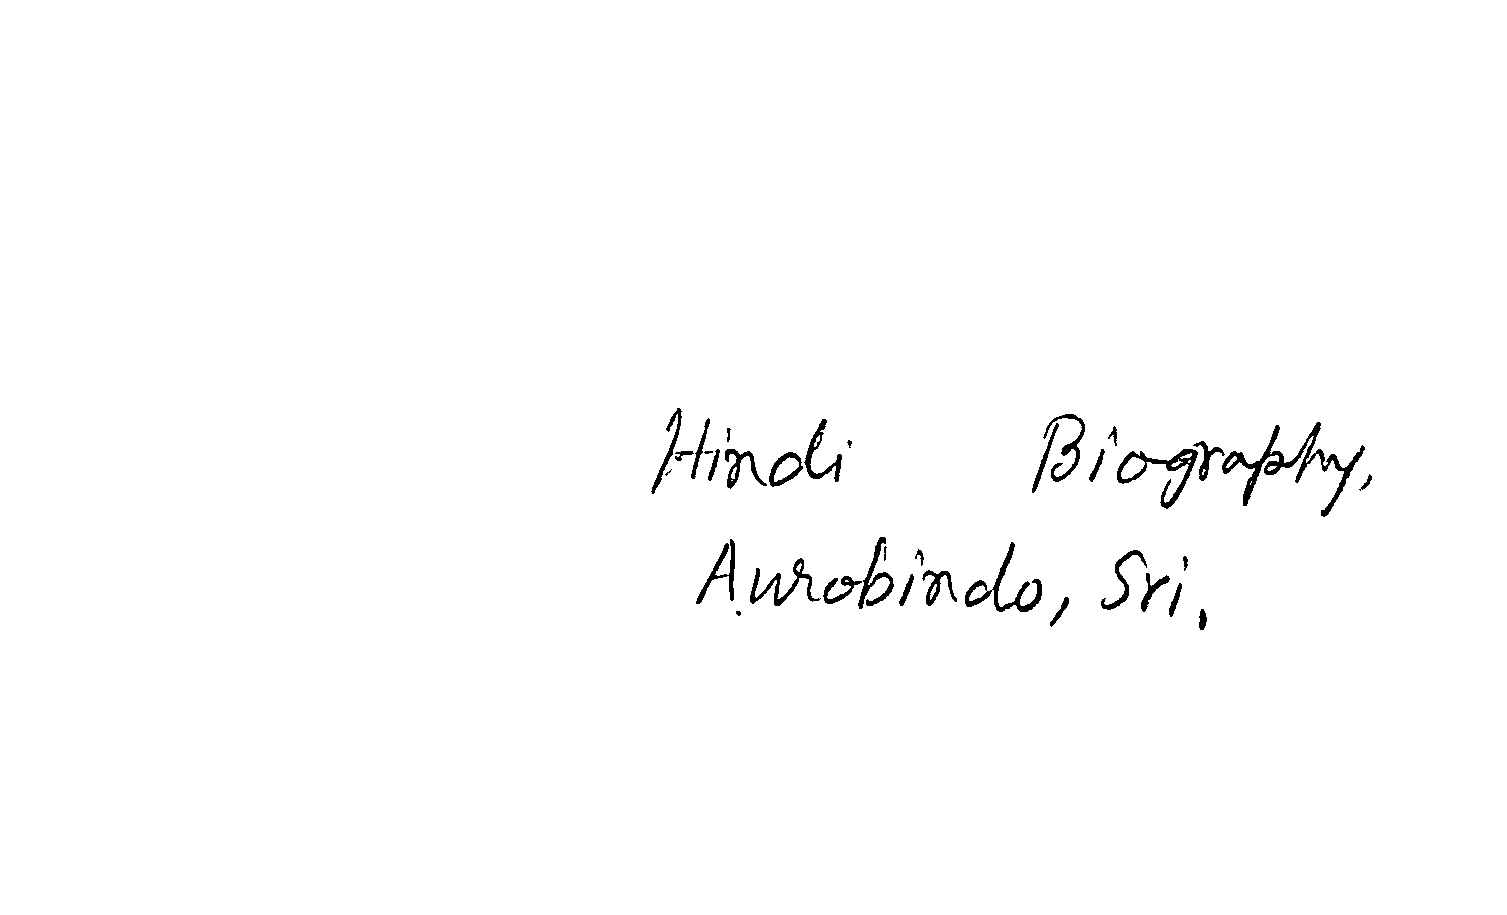 Hindi Biography,
Aurobindo, Sri.